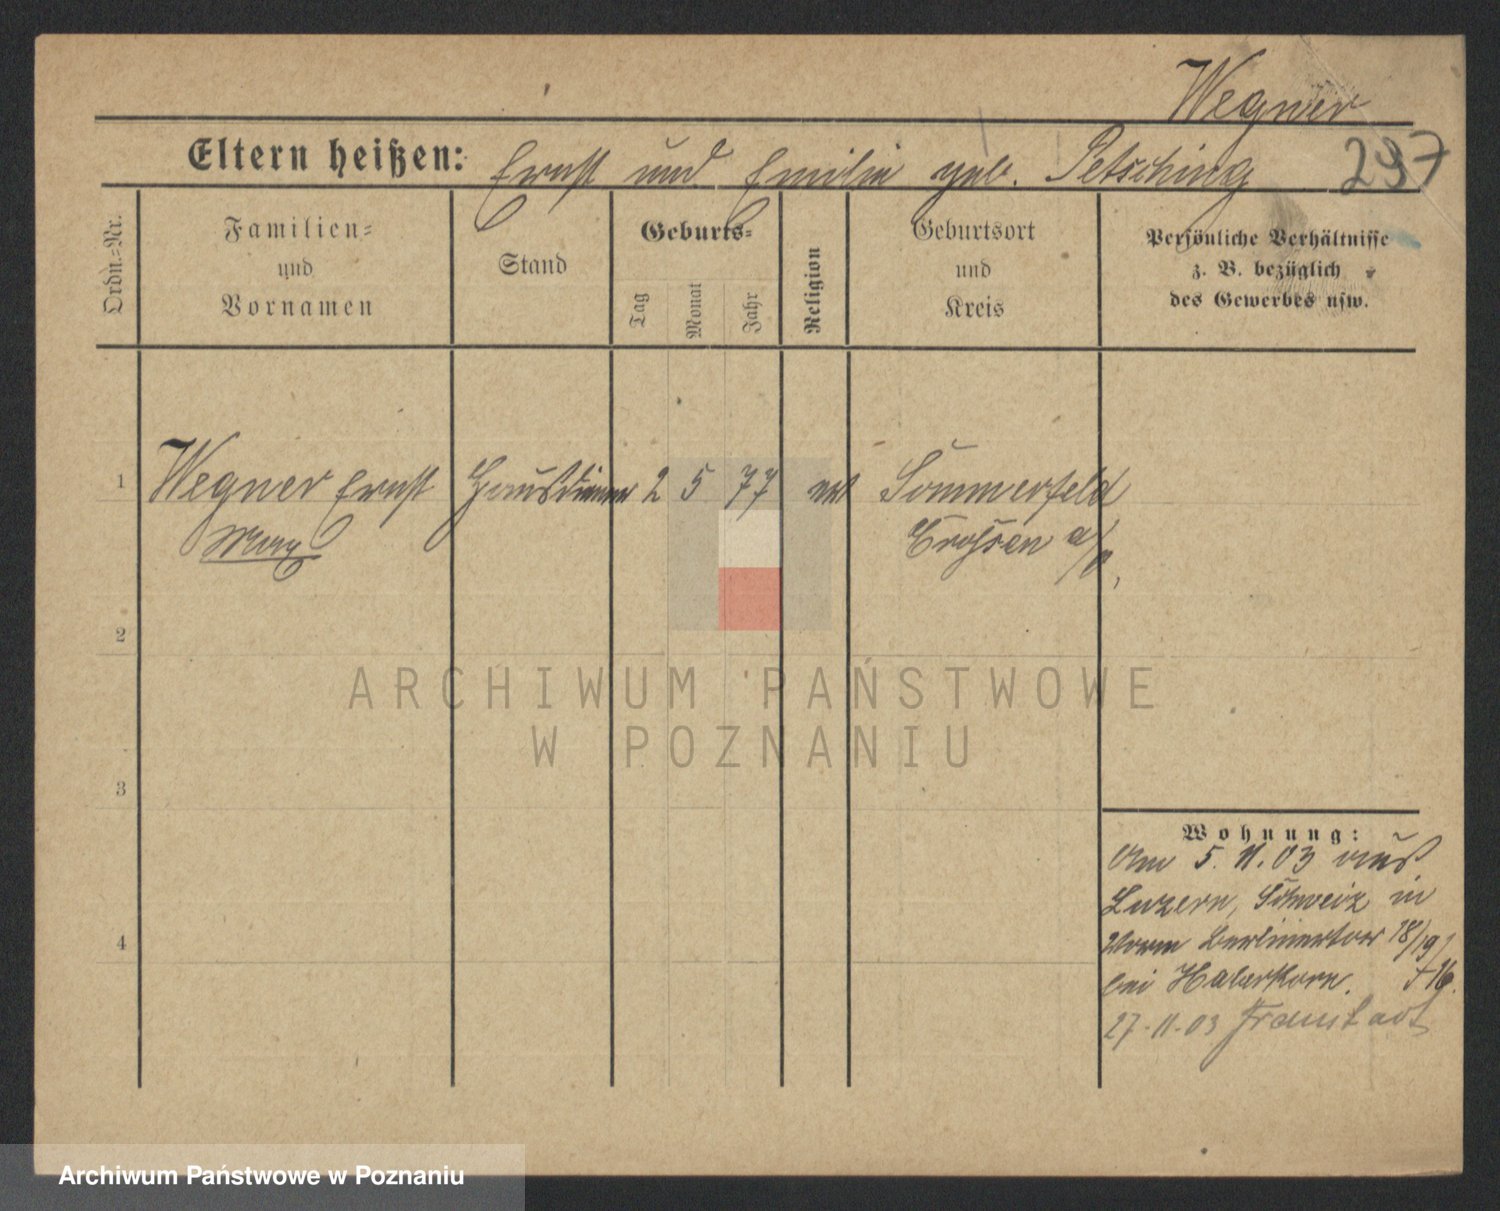 Wegner
Eltern heißen: Ernst und Emilie geb. Petsching
297
Ordn.-Nr.
Familien-
und
Vornamen
Stand
Geburts-
Tag
Monat
Jahr
Religion
Geburtsort
und
Kreis
Persönliche Verhältnisse
z. B. bezüglich
des Gewerbes usw.
1
Wegner Ernst
Max
Hausdiener
2
5
77
ev
Sommerfeld
Crossen a/O,
2
3
4
Wohnung:
Am 5.11.03 aus
Luzern, Schweiz in
Berlinertor 18/19
bei Haberkorn.
27.11.03 Fraustadt
ARCHIWUM PAŃSTWOWE
W POZNANIU
Archiwum Państwowe w Poznaniu